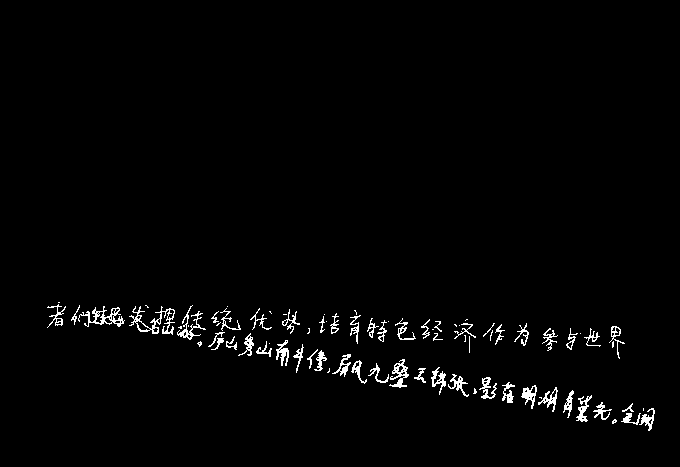 者们发挥传统优势,培育特色经济作为参与世界
名山游。庐山秀出南斗傍,屏风九叠云锦张,影落明湖青黛光。金阙